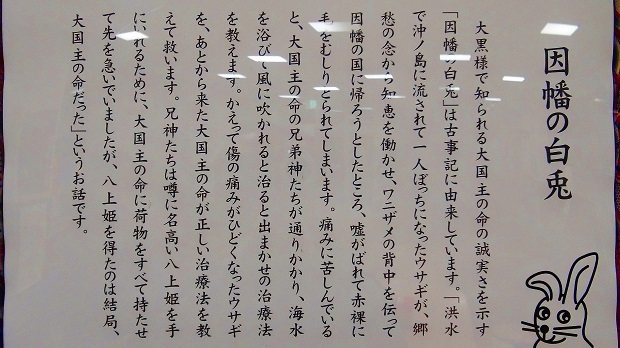 因幡の白兎
大黒様で知られる大国主の命の誠実さを示す
「因幡の白兎」は古事記に由来しています。「洪水
で沖ノ島に流されて一人ぼっちになったウサギが、郷
愁の念から知恵を働かせ、ワニザメの背中を伝って
因幡の国に帰ろうとしたところ、嘘がばれて赤裸に
毛をむしりとられてしまいます。痛みに苦しんでいる
と、大国主の命の兄弟神たちが通りかかり、海水
を浴びて風に吹かれると治ると出まかせの治療法
を教えます。かえって傷の痛みがひどくなったウサギ
を、あとから来た大国主の命が正しい治療法を教
えて救います。兄神たちは噂に名高い八上姫を手
にいれるために、大国主の命に荷物をすべて持たせ
て先を急いでいましたが、八上姫を得たのは結局、
大国主の命だった」というお話です。